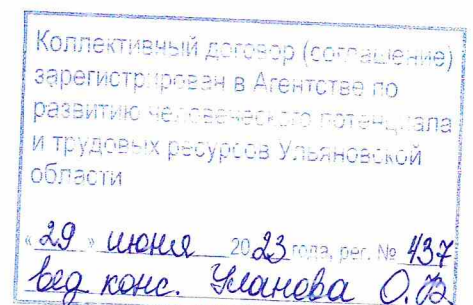 Коллективный договор (соглашение)
зарегистрирован в Агентстве по
развитию человеческого потенциала
и трудовых ресурсов Ульяновской
области
«29» июня 2023 года, рег. № 437
вед конс. Уланова О.В.